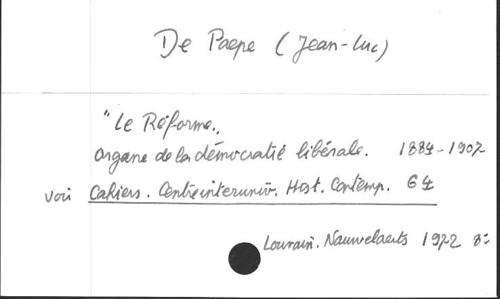 De Paepe (Jean-Luc)
"Le Réforme„
organe de la démocratie libérale. 1884-1907
voir Cahiers. Centre interuniv. Hist. Contemp. 64
Louvain. Nauwelaerts 1972 8°